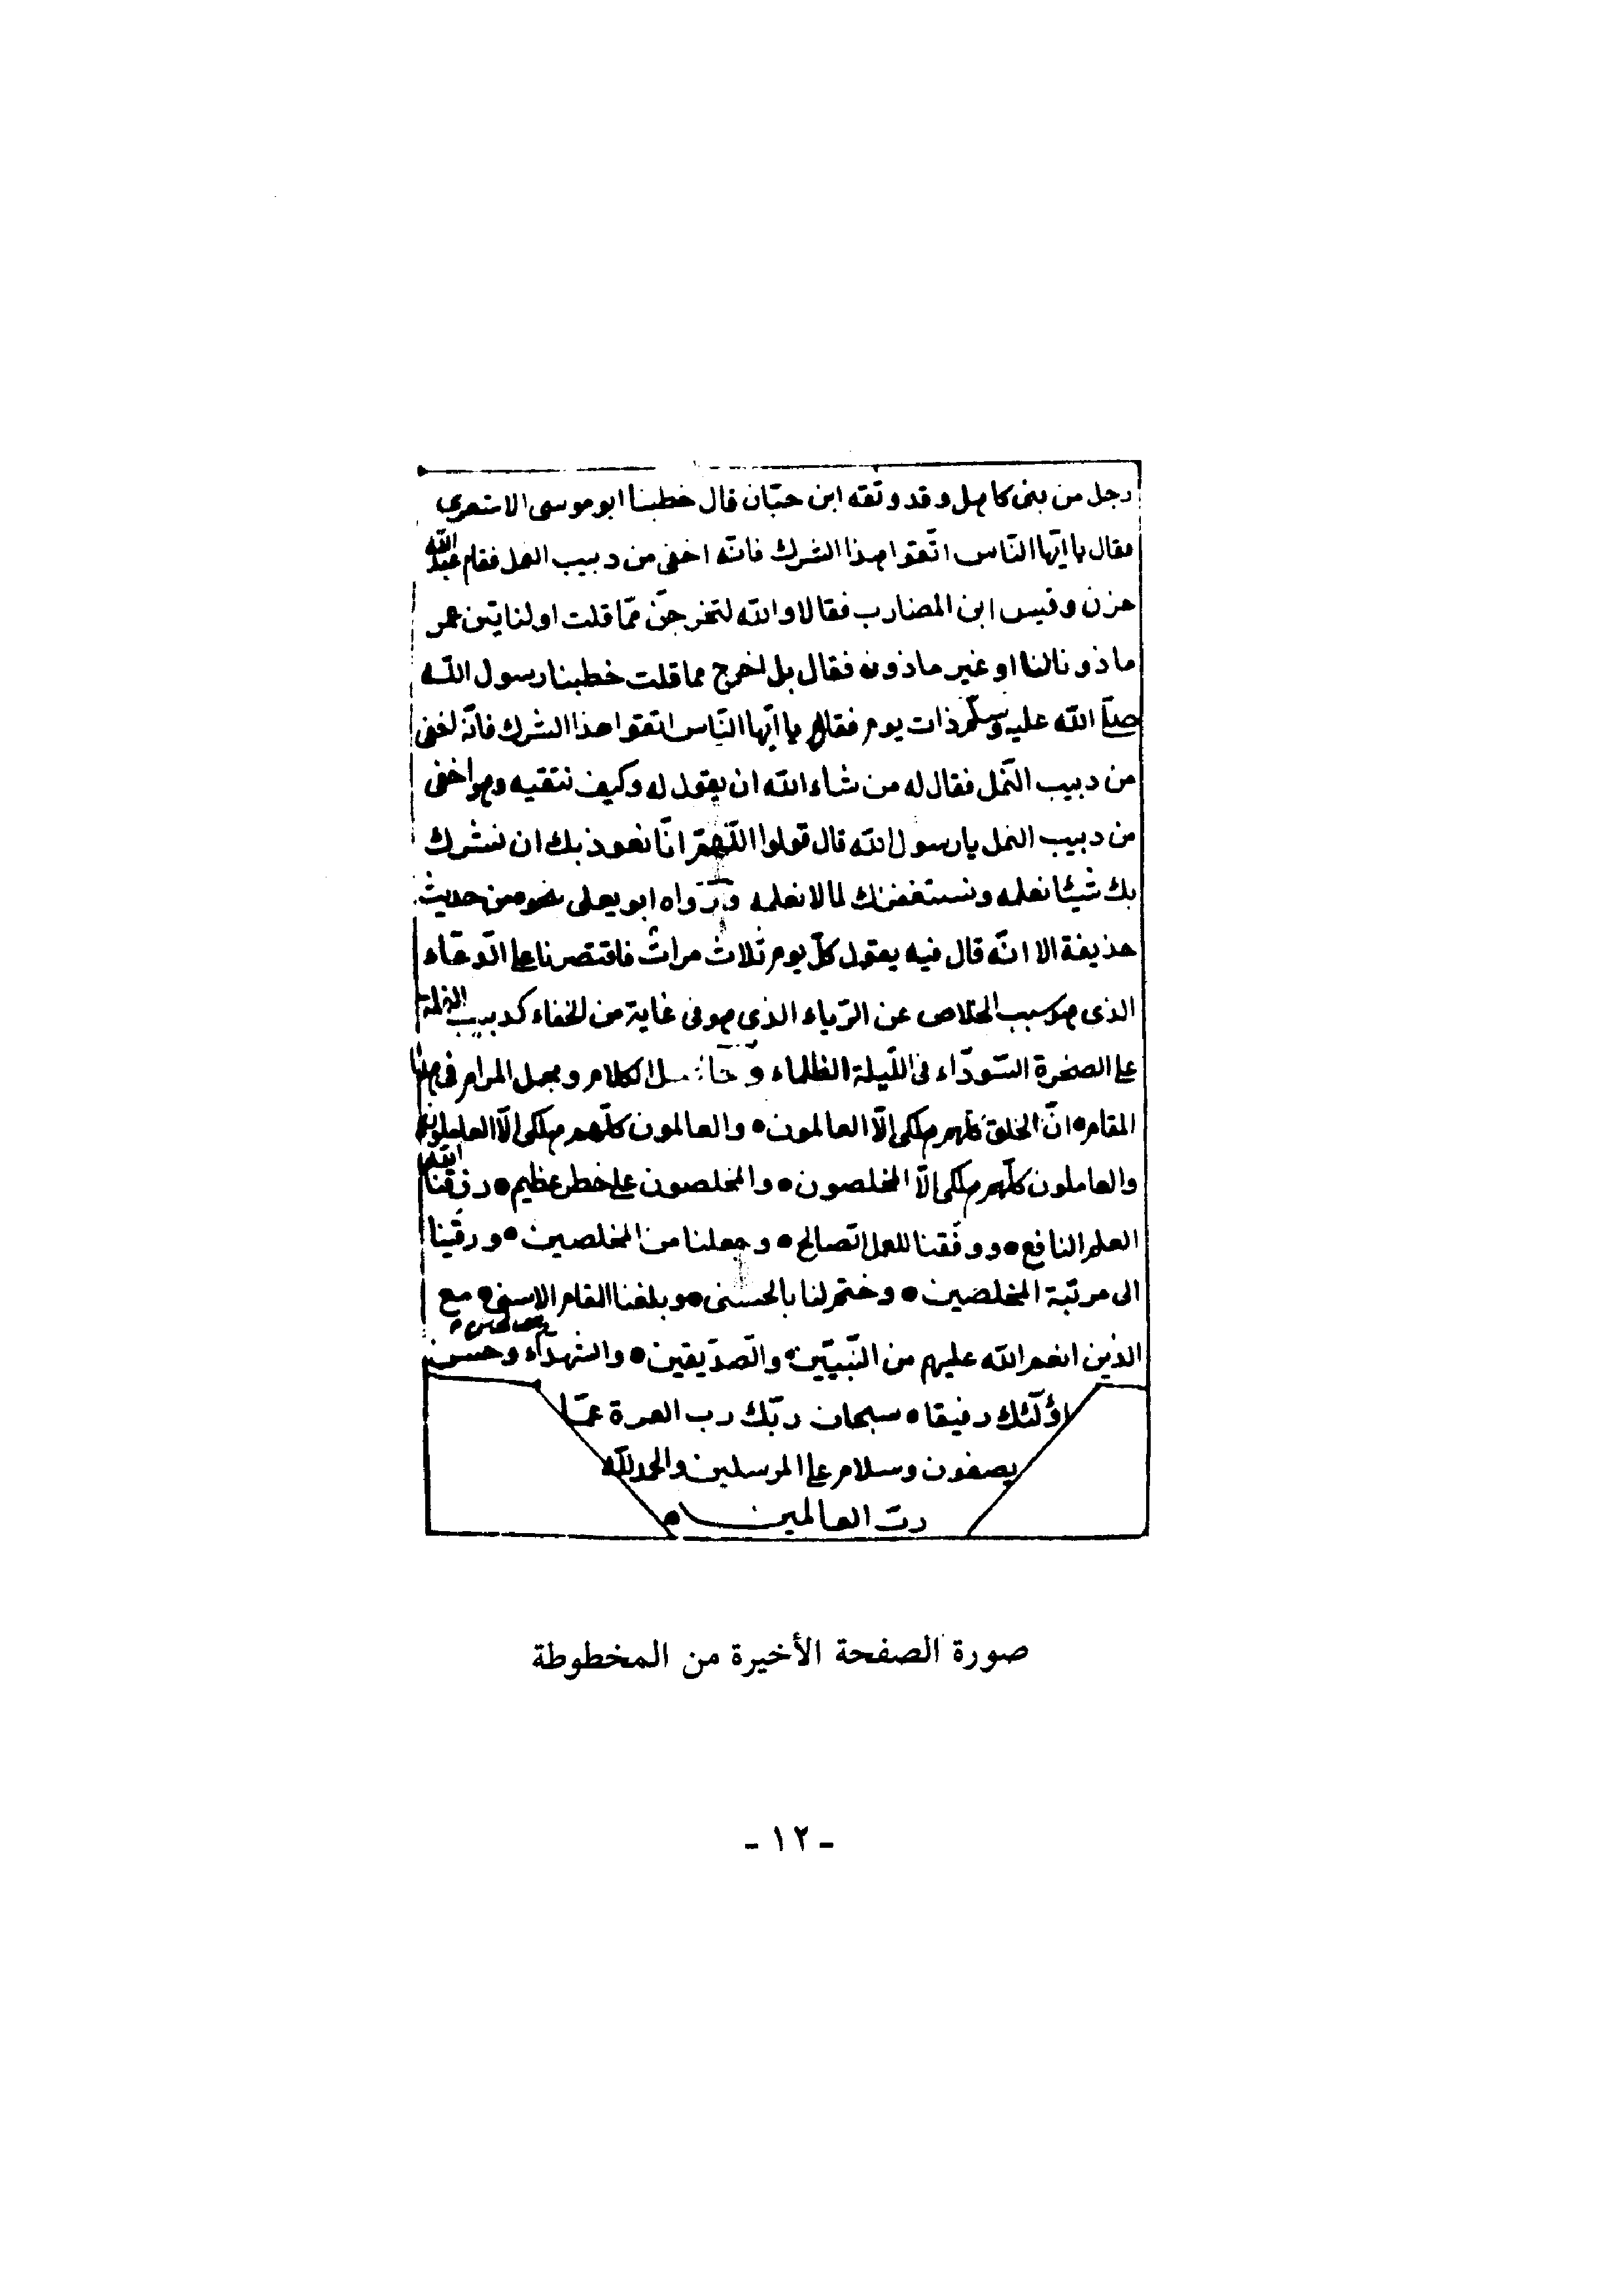 رجل من بنى كاهل وقد وثقه ابن حبّان قال خطبنا ابو موسى الاشعرى
فقال يا ايّها النّاس اتّقوا هذا الشرك فانّه اخفى من دبيب النمل فقام عبد الله
حزن وقيس ابن المضارب فقالا والله لتخرجنّ ممّا قلت او لناتينّ عمر
ماذونا لنا او غير ماذون فقال بل اخرج مما قلت خطبنا رسول الله
صلّى الله عليه وسلّم ذات يوم فقال يا ايّها النّاس اتقوا هذا الشرك فانّه اخفى
من دبيب النّمل فقال له من شاء الله ان يقول له وكيف نتقيه وهو اخفى
من دبيب النمل يا رسول الله قال قولوا اللّهمّ انّا نعوذ بك ان نشرك
بك شيئا نعلمه ونستغفرك لما لا نعلمه ورواه ابو يعلى بنحوه من حديث
حذيفة الا انّه قال فيه يقول كلّ يوم ثلاث مرات فاقتصرنا على الدّعاء
الذى هو سبب الخلاص عن الرّياء الذى هو فى غاية من الخفاء كدبيب النملة
على الصخرة السّوداء فى اللّيلة الظلماء وحاصل الكلام ومجمل المرام فى هذا
المقام انّ الخلق كلّهم هلكى الّا العالمون والعالمون كلّهم هلكى الّا العاملون
والعاملون كلّهم هلكى الّا المخلصون والمخلصون على خطر عظيم رزقنا الله
العلم النافع ووفّقنا للعمل الصّالح وجعلنا من المخلصين ورقّينا
الى مرتبة المخلصين وختم لنا بالحسنى وبلغنا المقام الاسنى مع
الذين انعم الله عليهم من النّبيّين والصّدّيقين والشهداء وحسن
اولئك رفيقا سبحان ربّك رب العزة عمّا
يصفون وسلام على المرسلين والحمد لله
ربّ العالمين م
صورة الصفحة الأخيرة من المخطوطة
- ١٢ -